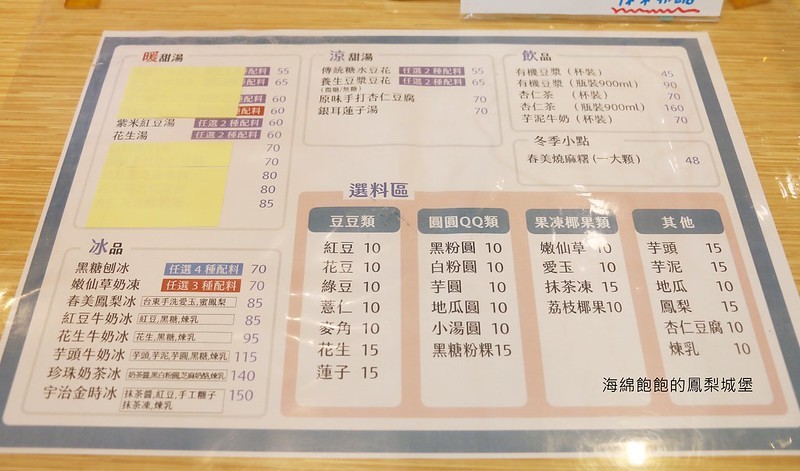 暖甜湯
配料 55
配料 65
配料 60
配料 60
紫米紅豆湯 任選2種配料 60
花生湯 任選2種配料 60
70
70
80
80
85
涼甜湯
傳統糖水豆花 任選2種配料 55
養生豆漿豆花 任選2種配料 65
(微糖/無糖)
原味手打杏仁豆腐 70
銀耳蓮子湯 70
飲品
有機豆漿(杯裝) 45
有機豆漿(瓶裝900ml) 90
杏仁茶(杯裝) 70
杏仁茶(瓶裝900ml) 160
芋泥牛奶(杯裝) 70
冬季小點
春美燒麻糬(一大顆) 48
冰品
黑糖刨冰 任選4種配料 70
嫩仙草奶凍 任選3種配料 70
春美鳳梨冰 台東手洗愛玉,蜜鳳梨 85
紅豆牛奶冰 紅豆,黑糖,煉乳 85
花生牛奶冰 花生,黑糖,煉乳 95
芋頭牛奶冰 芋頭,芋泥,芋圓,黑糖,煉乳 115
珍珠奶茶冰 奶茶醬,黑白粉圓,芝麻奶酪,煉乳 140
宇治金時冰 抹茶醬,紅豆,手工糰子 150
抹茶凍,煉乳
選料區
豆豆類
紅豆 10
花豆 10
綠豆 10
薏仁 10
麥角 10
花生 15
蓮子 15
圓圓QQ類
黑粉圓 10
白粉圓 10
芋圓 10
地瓜圓 10
小湯圓 10
黑糖粉粿15
果凍椰果類
嫩仙草 10
愛玉 10
抹茶凍 15
荔枝椰果10
其他
芋頭 15
芋泥 15
地瓜 10
鳳梨 15
杏仁豆腐 10
煉乳 10
海綿飽飽的鳳梨城堡